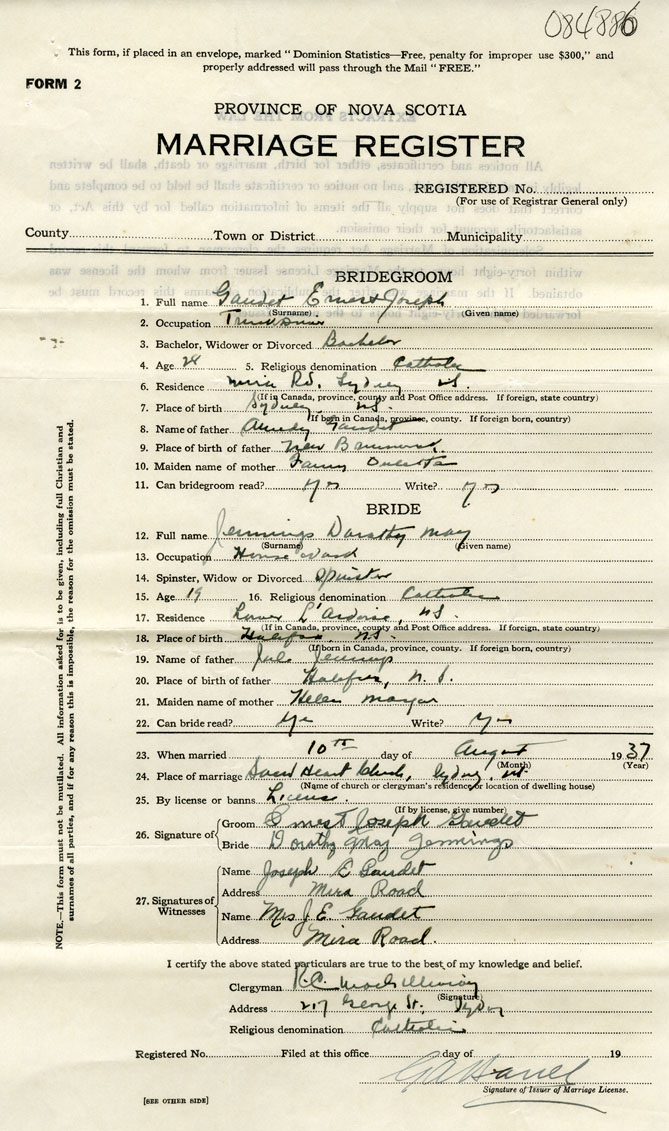 084886
This form, if placed in an envelope, marked "Dominion Statistics—Free, penalty for improper use $300," and
properly addressed will pass through the Mail "FREE."
FORM 2
PROVINCE OF NOVA SCOTIA
MARRIAGE REGISTER
REGISTERED No.
(For use of Registrar General only)
County Town or District Municipality
BRIDEGROOM
1. Full name Gaudet Ernest Joseph
(Surname) (Given name)
2. Occupation
3. Bachelor, Widower or Divorced Bachelor
4. Age 5. Religious denomination Catholic
6. Residence Mira Rd, Sydney NS.
(If in Canada, province, county and Post Office address. If foreign, state country)
7. Place of birth Sydney NS.
(If born in Canada, province, county. If foreign born, country)
8. Name of father Gaudet
9. Place of birth of father New Brunswick
10. Maiden name of mother
11. Can bridegroom read? Yes Write? Yes
BRIDE
12. Full name Jennings Dorothy May
(Surname) (Given name)
13. Occupation House
14. Spinster, Widow or Divorced Spinster
15. Age 19 16. Religious denomination Catholic
17. Residence Lower L'Ardoise, NS.
(If in Canada, province, county and Post Office address. If foreign, state country)
18. Place of birth Halifax NS.
(If born in Canada, province, county. If foreign born, country)
19. Name of father Jennings
20. Place of birth of father Halifax, N.S.
21. Maiden name of mother Helen
22. Can bride read? Yes Write? Yes
23. When married 10th day of August 1937
(Month) (Year)
24. Place of marriage Church, Sydney, NS
(Name of church or clergyman's residence, or location of dwelling house)
25. By license or banns License.
(If by license, give number)
26. Signature of
Groom Ernest Joseph Gaudet
Bride Dorothy May Jennings
27. Signatures of Witnesses
Name Joseph E Gaudet
Address Mira Road
Name Mrs J. E. Gaudet
Address Mira Road.
I certify the above stated particulars are true to the best of my knowledge and belief.
Clergyman R.C. MacGillivray
(Signature)
Address 217 George St. Sydney
Religious denomination Catholic
Registered No. Filed at this office day of 19
Signature of Issuer of Marriage License.
[SEE OTHER SIDE]
NOTE.—This form must not be mutilated. All information asked for is to be given, including full Christian and
surnames of all parties, and if for any reason this is impossible, the reason for the omission must be stated.